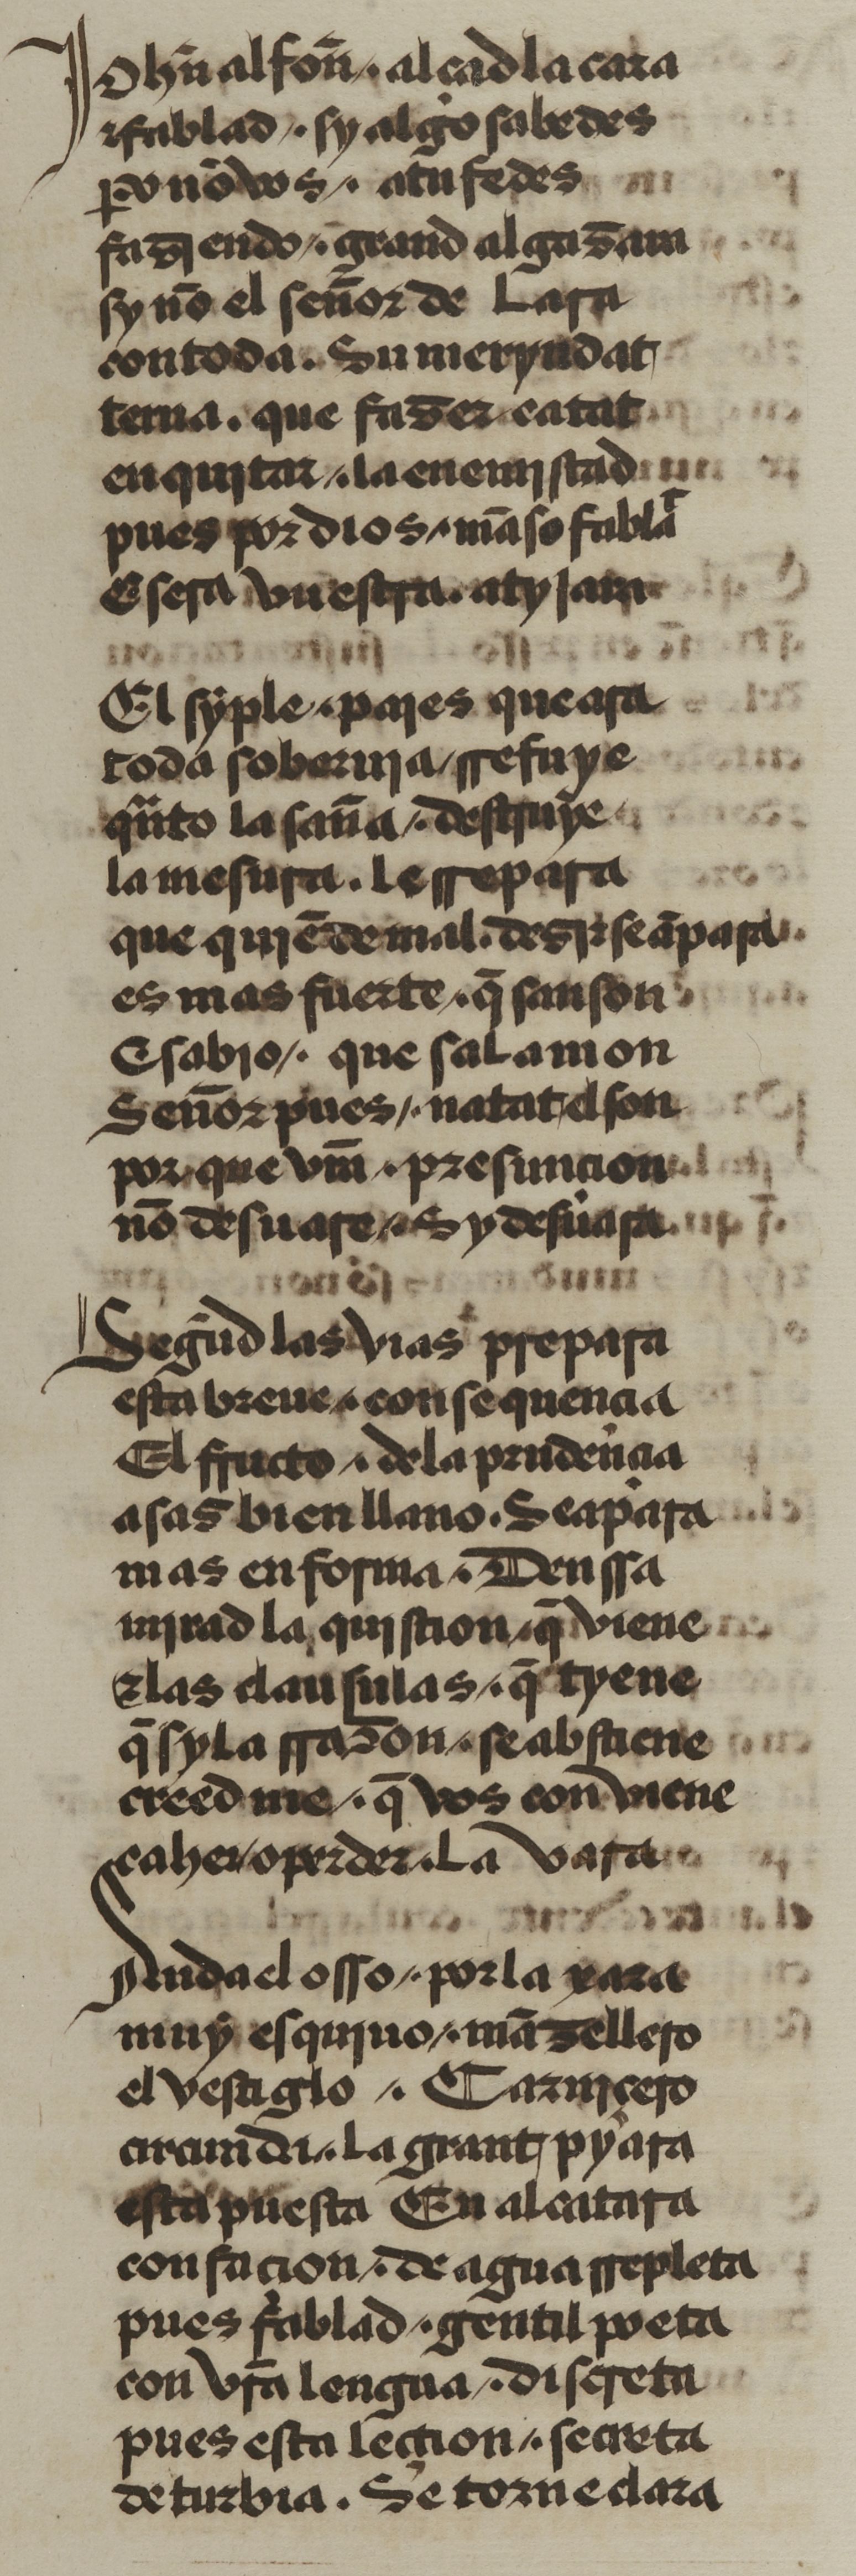 Johñ alfoñ /. alçad la cara
⁊ fablad /. sy algo sabedes
po nõ vos /. atufedes
fazjendo /. grand algazara
sy nõ el señor de Lara
con toda . Su meryndat
terna . que fazer catat
en quitar /. la enemistad
pues por dios /. mãso fabla
E sera vuestra . atyjara
El sỹple . pajes que ara
toda soberuja / rrefuye
quãto la saña /. destruye
la mesura . le rrepara
que qujẽ de mal . dezir se ãpara .
es mas fuerte /. q̃ sanson
E sabio /. que salamon
Señor pues /. natat el son
por que vr̃a /. presuncion
nõ desuare /. Sy desuara
Segũd las vias prepara
esta breue /. consequençia
El ffructo /. de la prudençia
asaz bien llano . Se apara
mas en forma /.
mirad la quistion / q̃ viene
⁊ las clausulas /. q̃ tyene
q̃ sy la rrazon /. se abstiene
creed me /. q̃ vos conviene
caher / o perder . La vara
Anda el osso /. por la xara
muy esquiuo /. mãzellero
el vestiglo /. Carnjçero
circundi /. la grant pyara
esta puesta En alcatara
confacion /. de agua rrepleta
pues fablad /. gentil poeta
con vr̃a lengua /. discreta
pues esta lection /. secreta
de turbia . Se torne clara